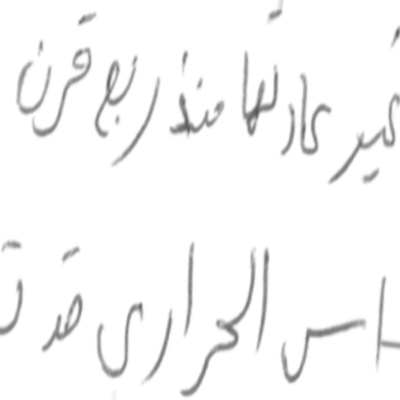 غير عادتها منذ ربع قرن
اس الحراري قد